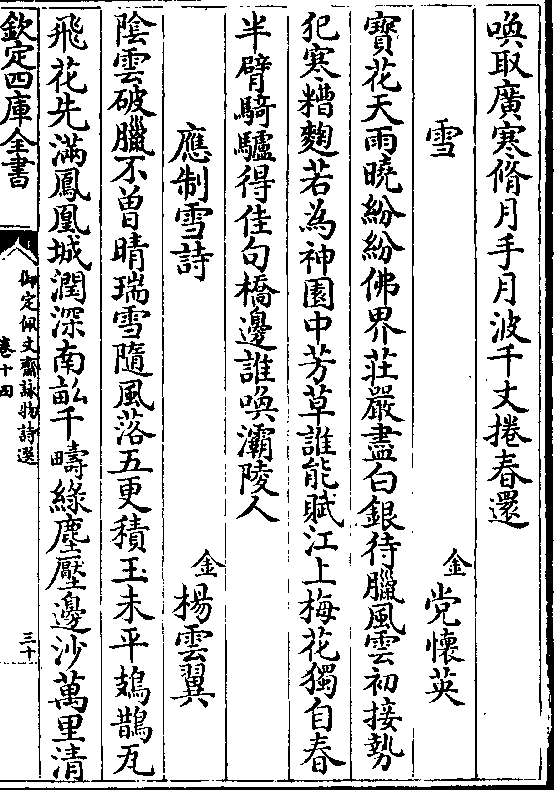 喚取廣寒脩月手月波千丈捲春還
雪
金党懷英
寳花天雨曉紛紛佛界荘嚴盡白銀待臘風雲初接勢
犯寒糟麴若為神園中芳草誰能賦江上梅花獨自春
半臂騎驢得佳句橋邊誰喚灞陵人
應制雪詩
金楊雲翼
陰雲破臘不曽晴瑞雪隨風落五更積玉未平鳷鵲瓦
飛花先滿鳳凰城潤深南畝千疇綠塵壓邊沙萬里清
欽定四庫全書
御定佩文齋詠物詩選
卷十四
三十